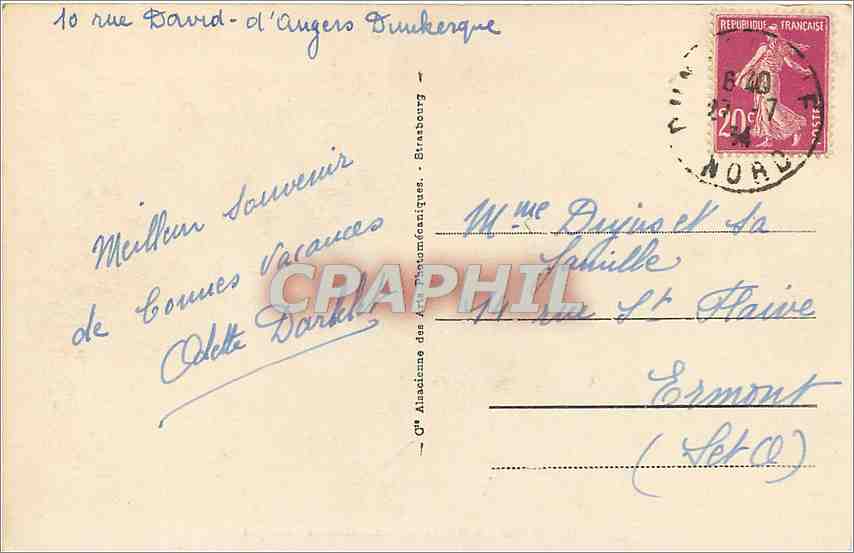 10 rue David-d'Angers Dunkerque
RÉPUBLIQUE FRANÇAISE
20c
POSTES
6 40
27 -7
34
NORD
Meilleur Souvenir
de Bonnes Vacances
Odette
Cie Alsacienne des Arts Photomécaniques. - Strasbourg
Mme Dujus et Sa
famille
14 rue St Flaive
Ermont
(S et O)
CPAPHIL